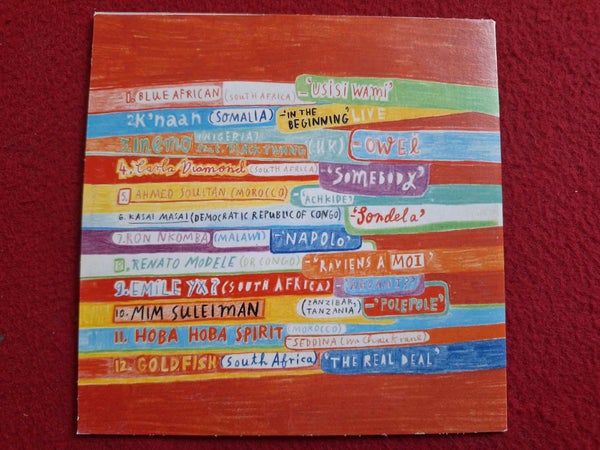 1. BLUE AFRICAN (SOUTH AFRICA) - 'USISI WAMI'
2. K'naan (SOMALIA) - 'IN THE BEGINNING' LIVE
3. nemo (NIGERIA) (UK) - 'OWEI
4. Carla Diamond (SOUTH AFRICA) 'SOMEBODY'
5. AHMED SOULTAN (MOROCCO) - 'ACHKIDE'
6. KASAI MASAI (DEMOCRATIC REPUBLIC OF CONGO) - 'Sondela'
7. RON NKOMBA (MALAWI) - 'NAPOLO'
8. RENATO MODELE (DR CONGO) - 'RAVIENS A MOI'
9. EMILE YX? (SOUTH AFRICA) -
10. MIM SULEIMAN (ZANZIBAR, TANZANIA) - 'POLEPOLE'
11. HOBA HOBA SPIRIT (MOROCCO)
- SEDDINA
12. GOLDFISH (South Africa) 'THE REAL DEAL'